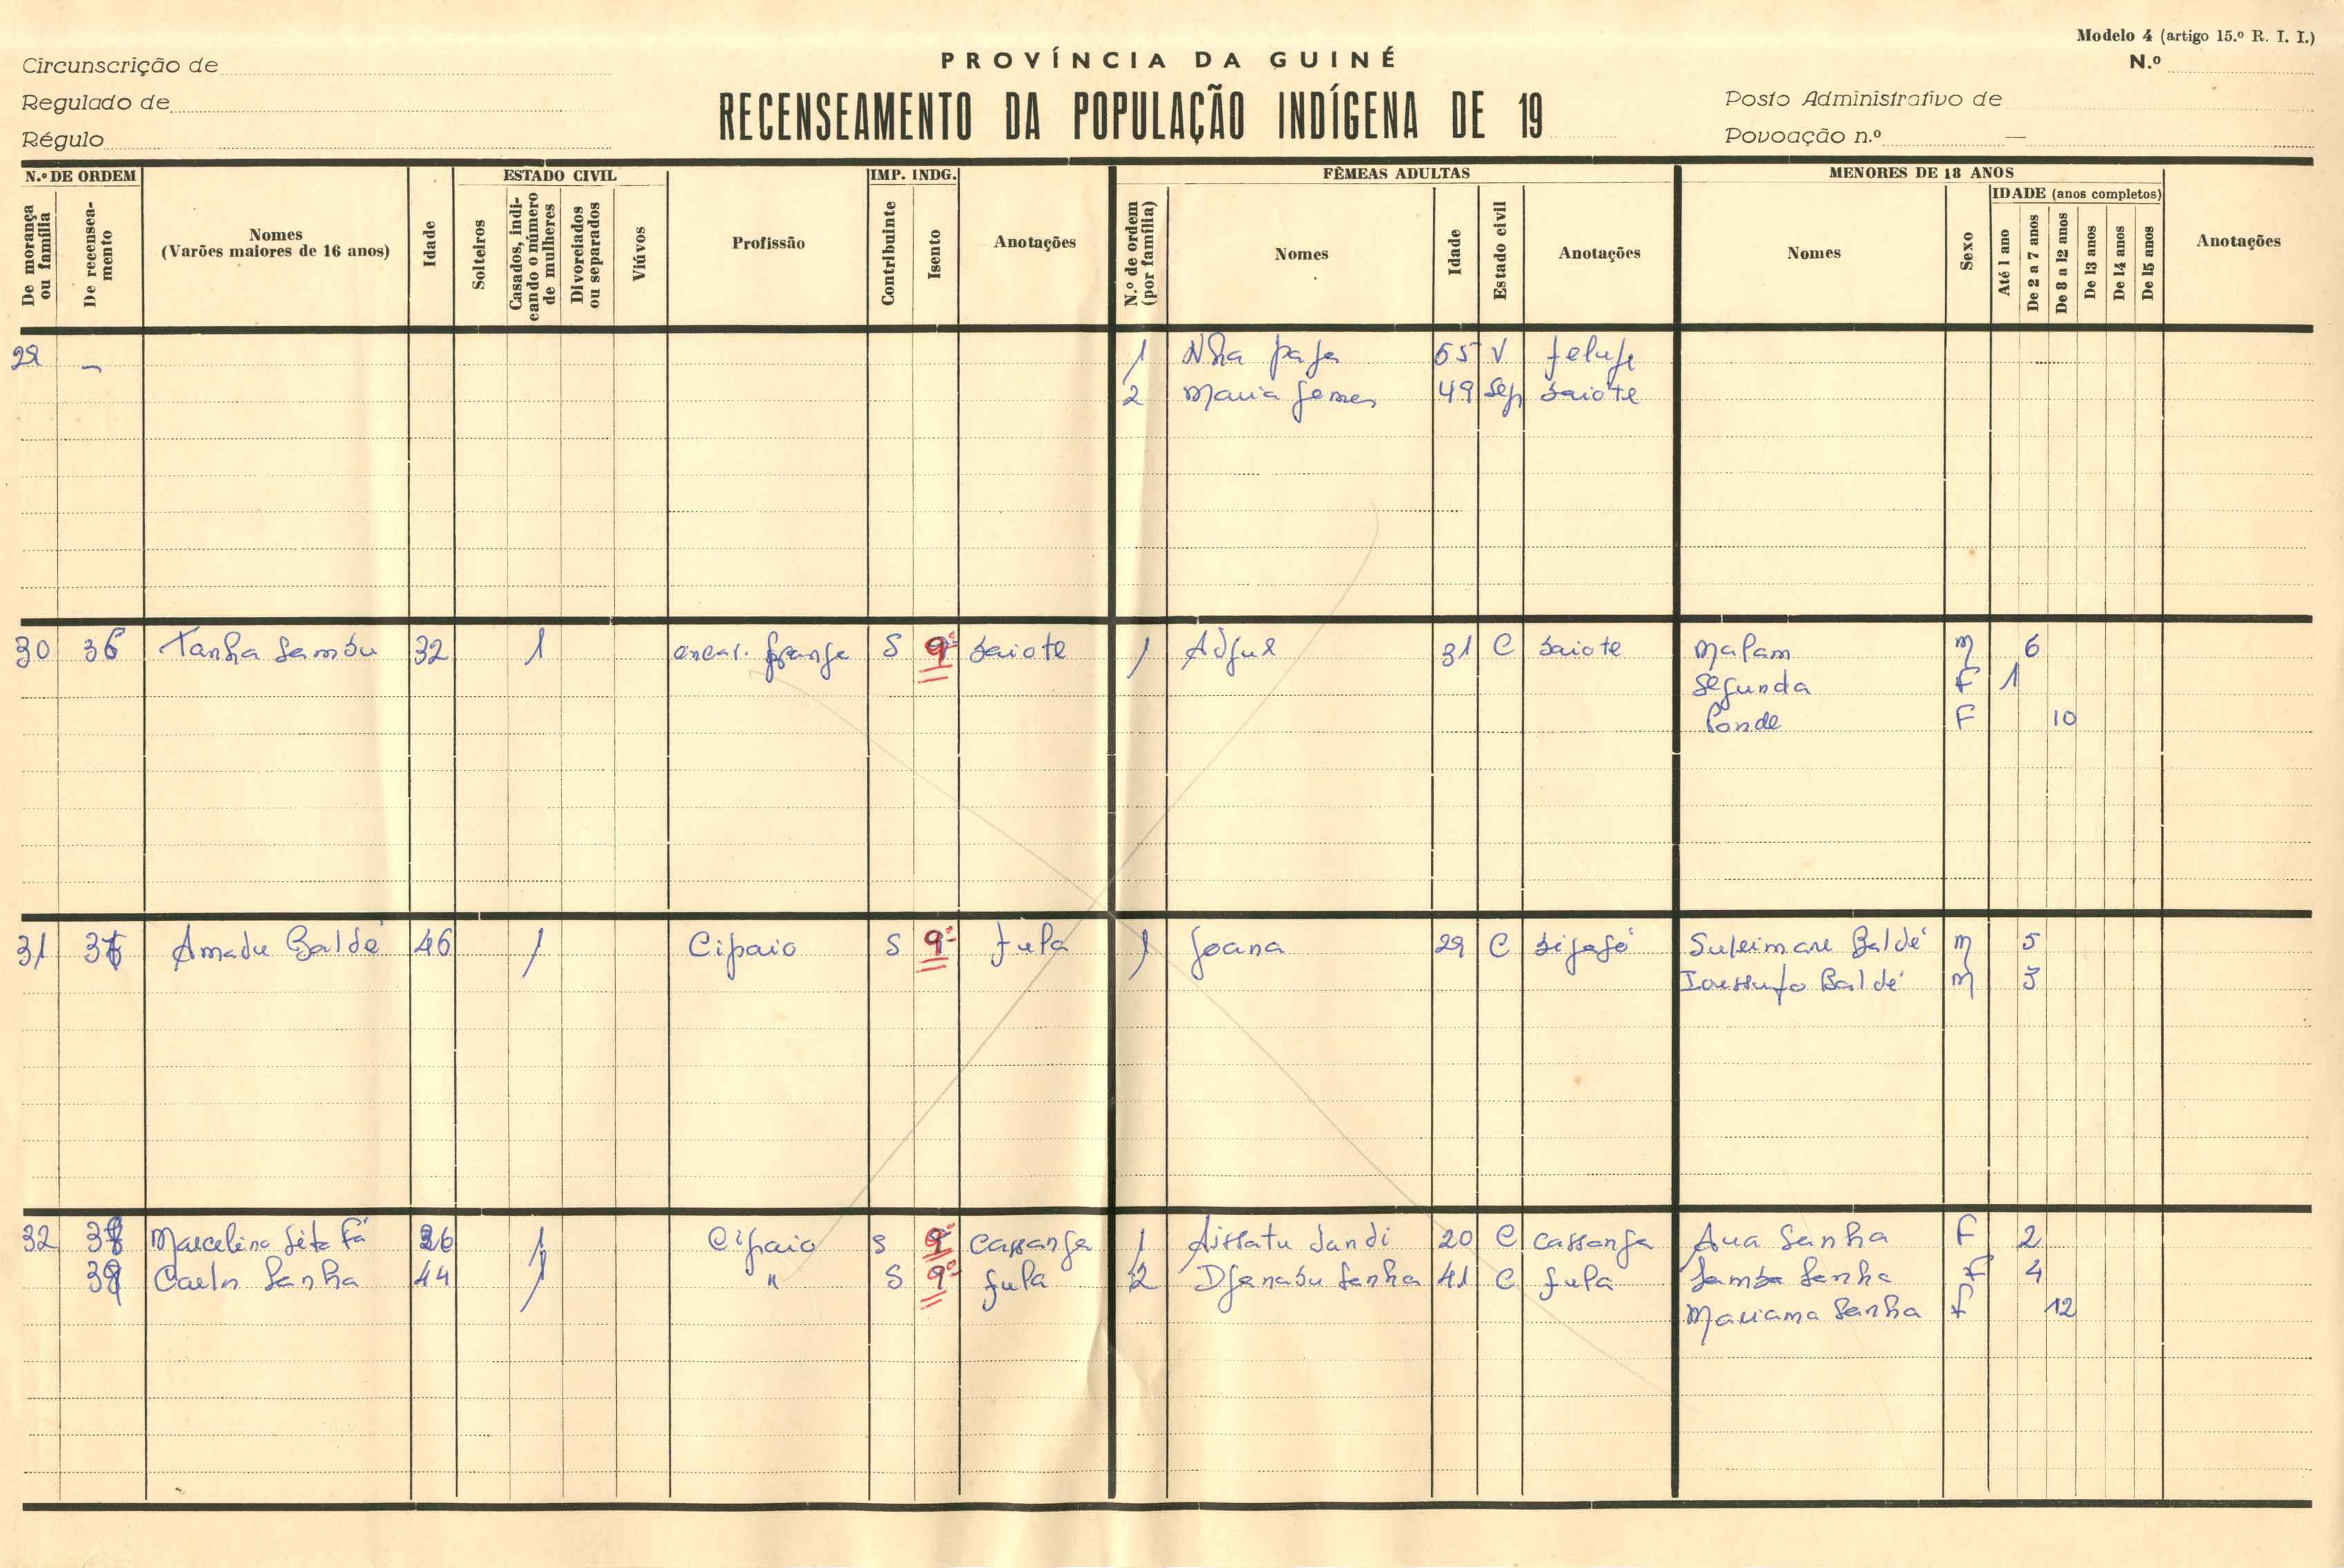 Modelo 4 (artigo 15.º R. I. I.)
PROVÍNCIA DA GUINÉ
N.º
Circunscrição de
Regulado de
RECENSEAMENTO DA POPULAÇÃO INDÍGENA DE 19
Posto Administrativo de
Régulo
Povoação n.º —
N.º DE ORDEM
ESTADO CIVIL
IMP. INDG.
FÊMEAS ADULTAS
MENORES DE 18 ANOS
IDADE (anos completos)
De morança ou família
De recenseamento
Nomes
(Varões maiores de 16 anos)
Idade
Solteiros
Casados, indicando o número de mulheres
Divorciados ou separados
Viúvos
Profissão
Contribuinte
Isento
Anotações
N.º de ordem (por família)
Nomes
Idade
Estado civil
Anotações
Nomes
Sexo
Até 1 ano
De 2 a 7 anos
De 8 a 12 anos
De 13 anos
De 14 anos
De 15 anos
Anotações
29 — 1 Nha 65 V felupe
2 Maria Gomes 49 Sep baiote
30 36 Tanha Sambu 32 1 encar. granja S 9º baiote 1 Adjul 31 C baiote Malam M 6
Segunda F 1
Conde F 10
31 37 Amadu Baldé 46 1 Cipaio S 9º fula 1 Joana 29 C bijagó Suleimane Baldé M 5
Iussufo Baldé M 3
32 38 Marcelino 26 1 Cipaio S 9º Cassanga 1 Aissatu Sandi 20 C cassanga Aua Sanha F 2
39 Carlos Sanha 44 1 " S 9º fula 2 Djenabu Sanha 41 C fula Samba Sanha F 4
Mariama Sanha F 12